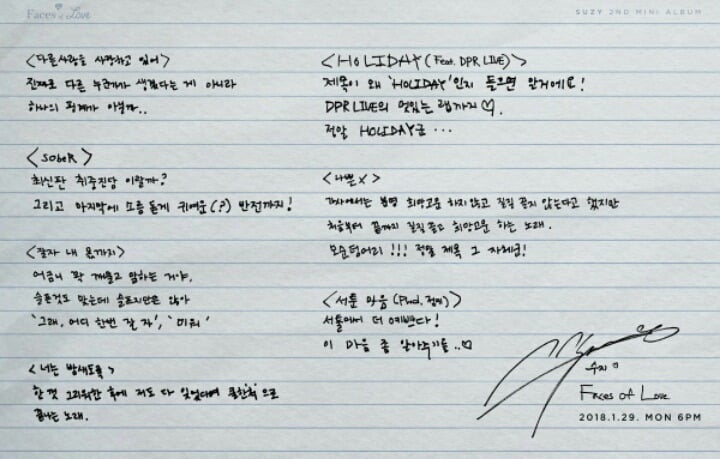 Faces of Love
SUZY 2ND MINI ALBUM
<다른사람을 사랑하고 있어>
진짜로 다른 누군가가 생겼다는 게 아니라
하나의 핑계가 아닐까..
<SObeR>
최신판 취중진담 이랄까?
그리고 마지막에 소름 돋게 귀여운(?) 반전까지!
<잘자 내 몫까지>
어금니 꽉 깨물고 말하는 거야.
슬픈것도 맞는데 슬프지만은 않아
'그래, 어디 한번 잘 자', '미워'
<너는 밤새도록>
한껏 그리워한 후에 저도 다 잊었다며 쿨한척으로
끝나는 노래.
<HOLIDAY (Feat. DPR LIVE)>
제목이 왜 'HOLIDAY'인지 들으면 알거에요!
DPR LIVE의 멋있는 랩까지♡.
정말 HOLIDAY금 ...
<나쁜X>
가사에서는 분명 희망고문 하지않고 질질 끌지 않는다고 했지만
처음부터 끝까지 질질 끌고 희망고문 하는 노래.
모순덩어리!!! 정말 제목 그 자체군!
<서툰 마음 (Prod. 정바)>
서툴러서 더 예쁘다!
이 마음 좀 알아주기를..♡
수지
Faces of Love
2018.1.29. MON 6PM